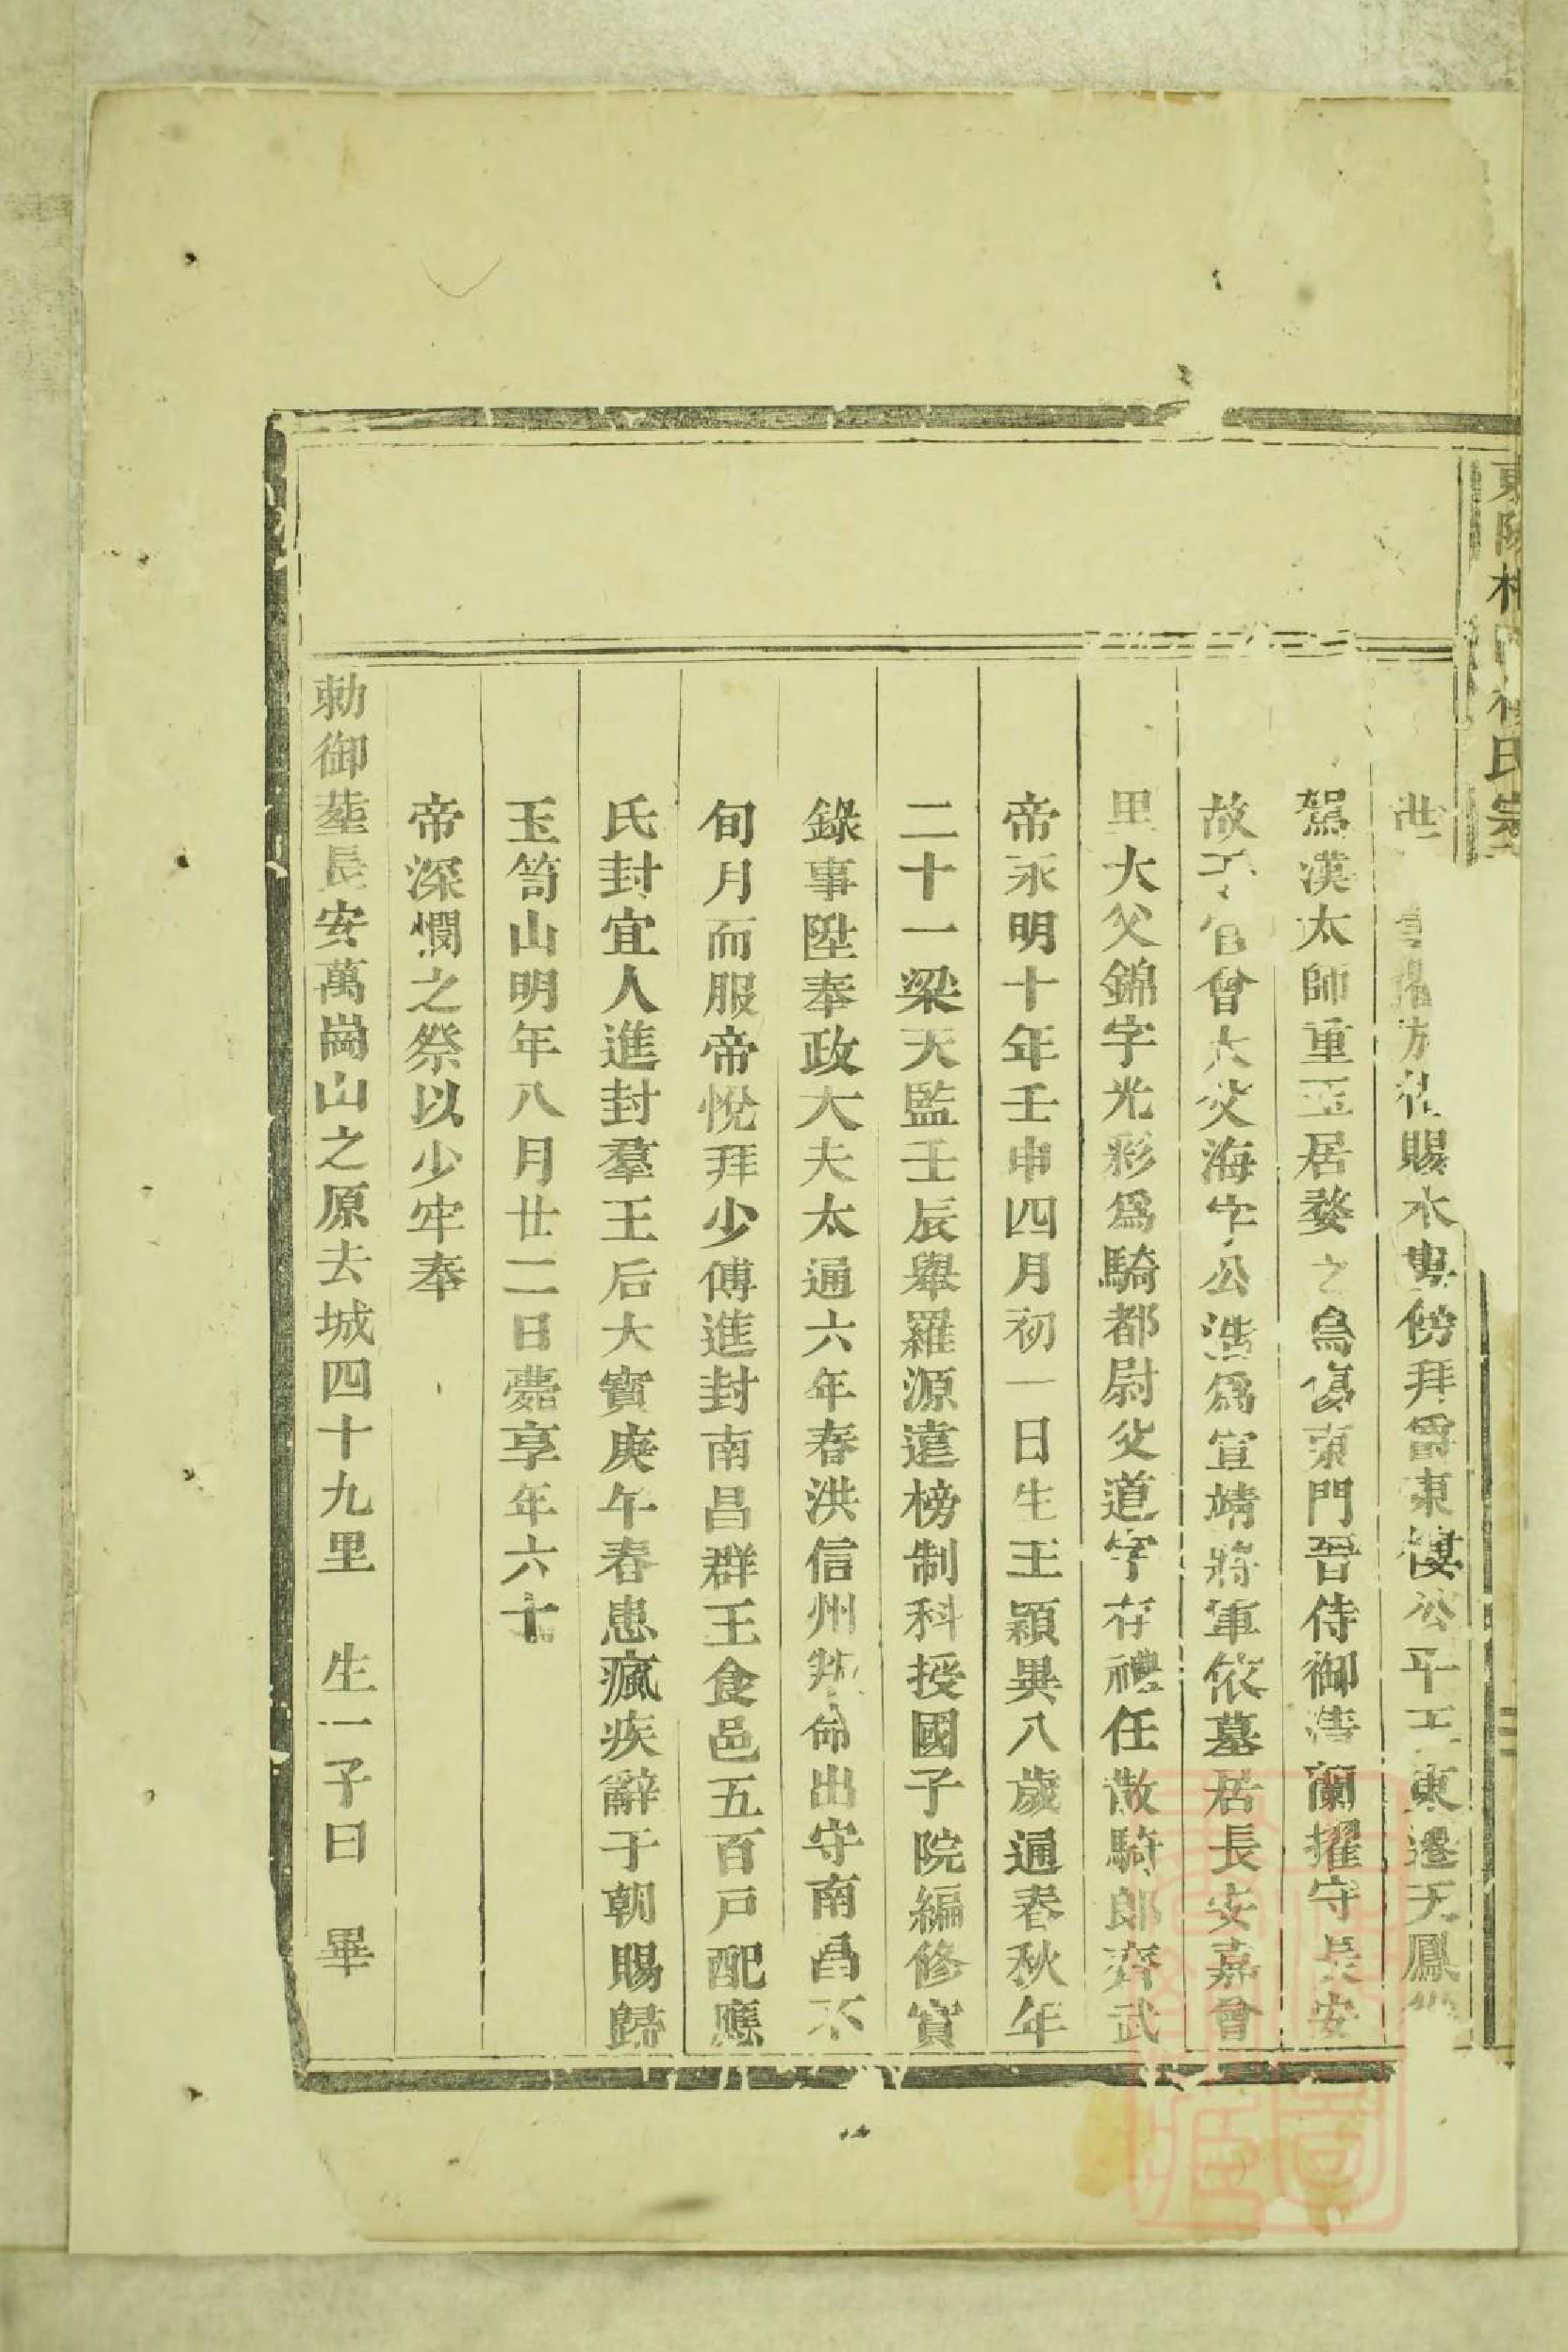 東陽 氏宗
世 賜 拜爵東樓公平王東遷天鳳
駕漢太師重玉居婺之烏傷東門晉侍御濤蘭擢守長安
故 官曾大父海字公浩爲宣靖將軍依墓居長安嘉會
里大父錦字光彩爲騎都尉父道字存禮任散騎郎齊武
帝永明十年壬申四月初一日生王穎異八歲通春秋年
二十一梁天監壬辰舉羅源遠榜制科授國子院編修實
錄事陞奉政大夫太通六年春洪信州判命出守南昌不
旬月而服帝悅拜少傅進封南昌群王食邑五百戶配應
氏封宜人進封羣王后大寶庚午春患瘋疾辭于朝賜歸
玉笥山明年八月廿二日薨享年六十
帝深憫之祭以少牢奉
勅御塟長安萬崗山之原去城四十九里 生一子曰 畢